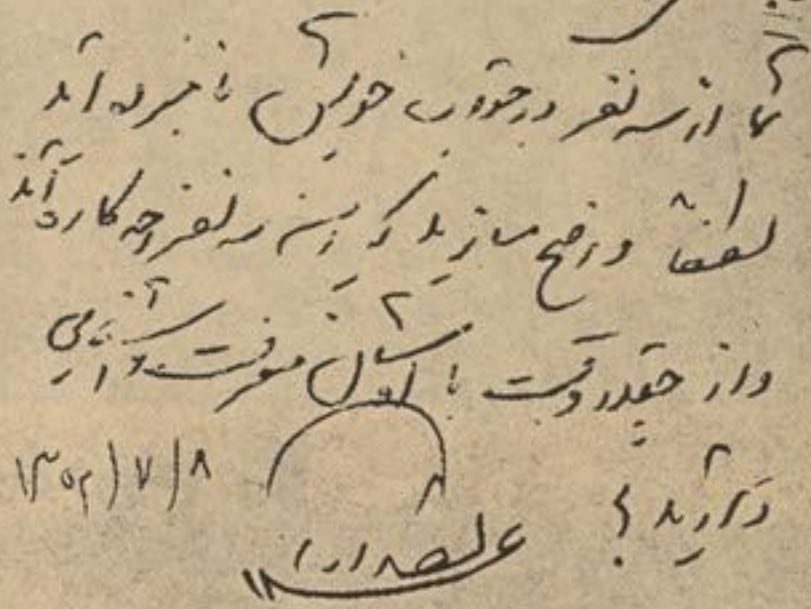 شما از سه نفر در جواب خویش نام برده اید
لطفاً واضح سازید که این سه نفر چه کاره اند
و از چقدر وقت با ایشان معرفت و آشنایی
دارید؟
۱۳۵۲/۷/۸